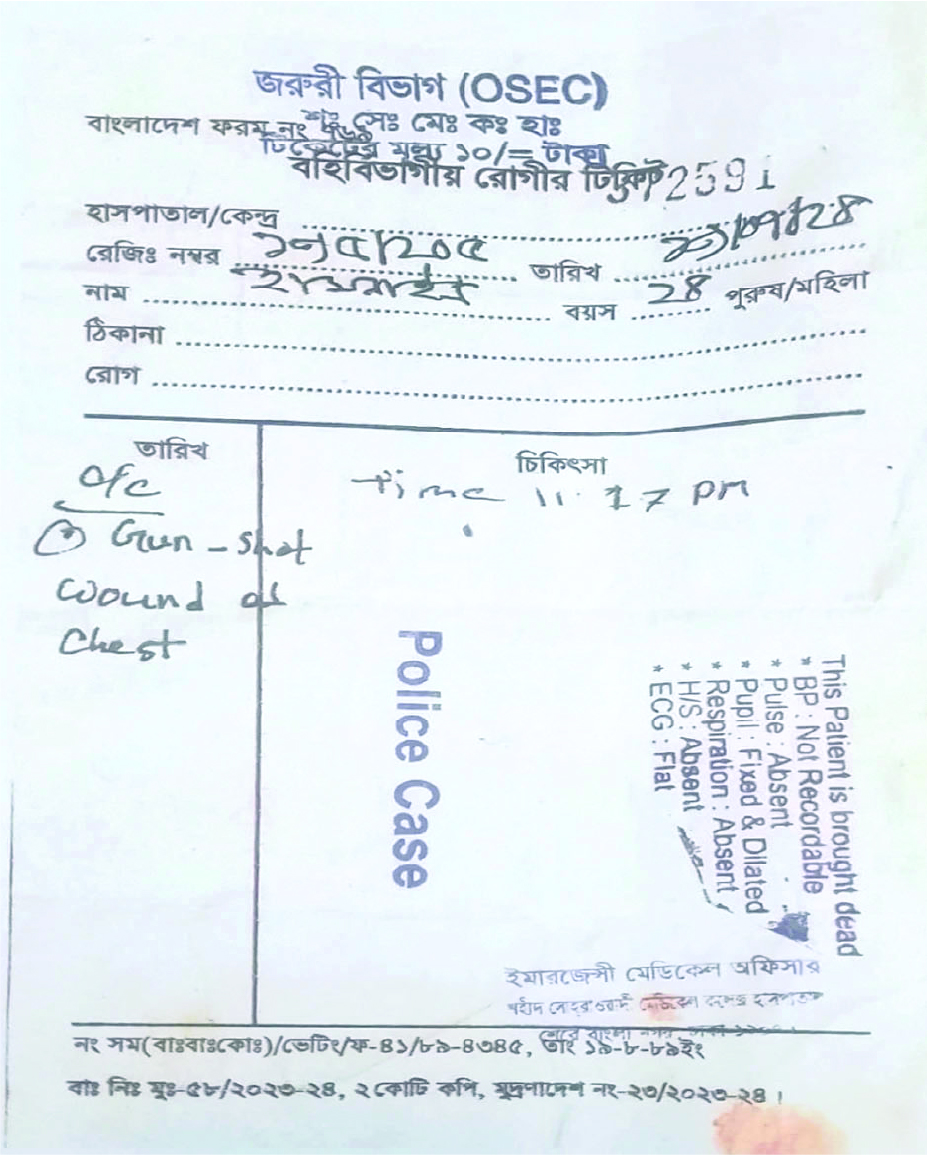 জরুরী বিভাগ (OSEC)
শহীঃ সোঃ মেঃ কঃ হাঃ
বাংলাদেশ ফরম নং
টিকেটের মূল্য ১০/= টাকা
বহির্বিভাগীয় রোগীর টিকিট 2591
হাসপাতাল/কেন্দ্র
রেজিঃ নম্বর তারিখ
নাম বয়স 28 পুরুষ/মহিলা
ঠিকানা
রোগ
তারিখ
চিকিৎসা
O/E
Time 11.17 PM
Gun-shot
wound at
Chest
Police Case
This Patient is brought dead
* BP : Not Recordable
* Pulse : Absent
* Pupil : Fixed & Dilated
* Respiration : Absent
* H/S : Absent
* ECG : Flat
ইমারজেন্সী মেডিকেল অফিসার
নং সম(বাঃবাঃকোঃ)/ভেটিং/ফ-৪১/৮৯-৪৩৪৫, তাং ১৯-৮-৮৯ইং
বাঃ নিঃ মুঃ-৫৮/২০২৩-২৪, ২ কোটি কপি, মুদ্রণাদেশ নং-২৩/২০২৩-২৪।